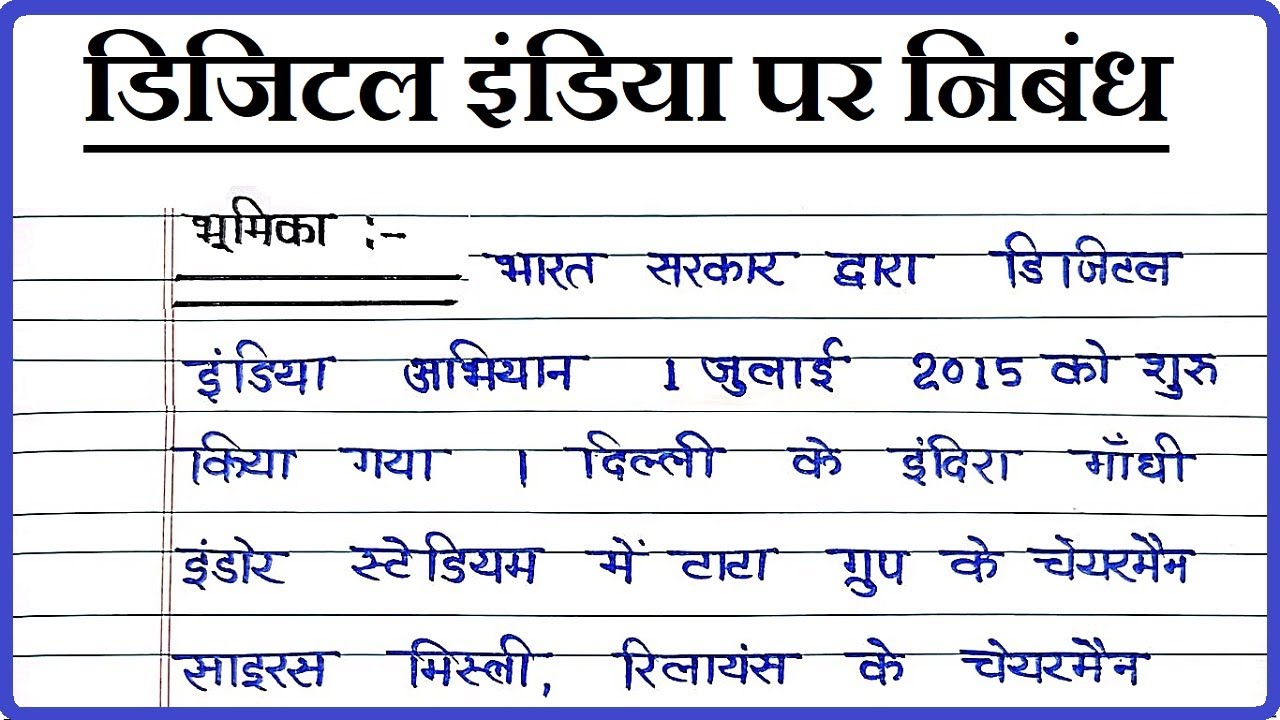 डिजिटल इंडिया पर निबंध
भूमिका :-
भारत सरकार द्वारा डिजिटल
इंडिया अभियान 1 जुलाई 2015 को शुरु
किया गया । दिल्ली के इंदिरा गाँधी
इंडोर स्टेडियम में टाटा ग्रुप के चेयरमैन
साइरस मिस्त्री, रिलायंस के चेयरमैन